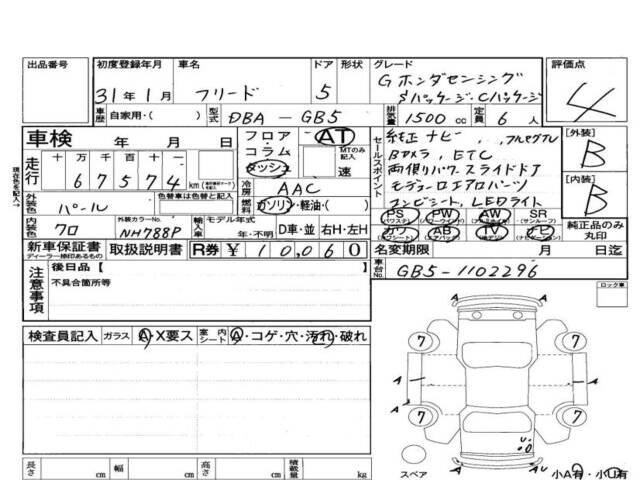 出品番号 初度登録年月 車名 ドア 形状 グレード 評価点
31年1月 フリード 5 G ホンダセンシング
Sパッケージ・Cパッケージ 4
車歴 自家用・( ) 型式 DBA-GB5 排気量 1500cc 定員 6人
車検 年 月 日
フロア・コラム ダッシュ AT MTのみ記入 速
セールスポイント
純正ナビ、フルセグTV
Bカメラ、ETC
両側パワースライドドア
モデューロエアロパーツ
コンビシート、LEDライト
[外装] B
[内装] B
現在色を記入→
走行 十 万 千 百 十
6 7 5 7 4 km
冷房 AAC
燃料 ガソリン・軽油・( )
外装色 パール 色替車は色替と記入
内装色 クロ 外装カラーNo. NH788P
輸入車 モデル年式 年・不明 D車・並 右H・左H
PS PW AW SR
カワ AB TV ナビ
純正品のみ丸印
新車保証書 ディーラー捺印あるもの 取扱説明書 R券 ¥10,060
名変期限 月 日迄
車台No. GB5-1102296
注意事項 後日品[ ]
不具合箇所等
ロック車
検査員記入 ガラス A・X要ス 室内シート A・コゲ・穴・汚れ・破れ
7 7
A A
7 7
A
スペア 小A有・小U有
長さ cm 幅 cm 高さ cm 積載量 kg